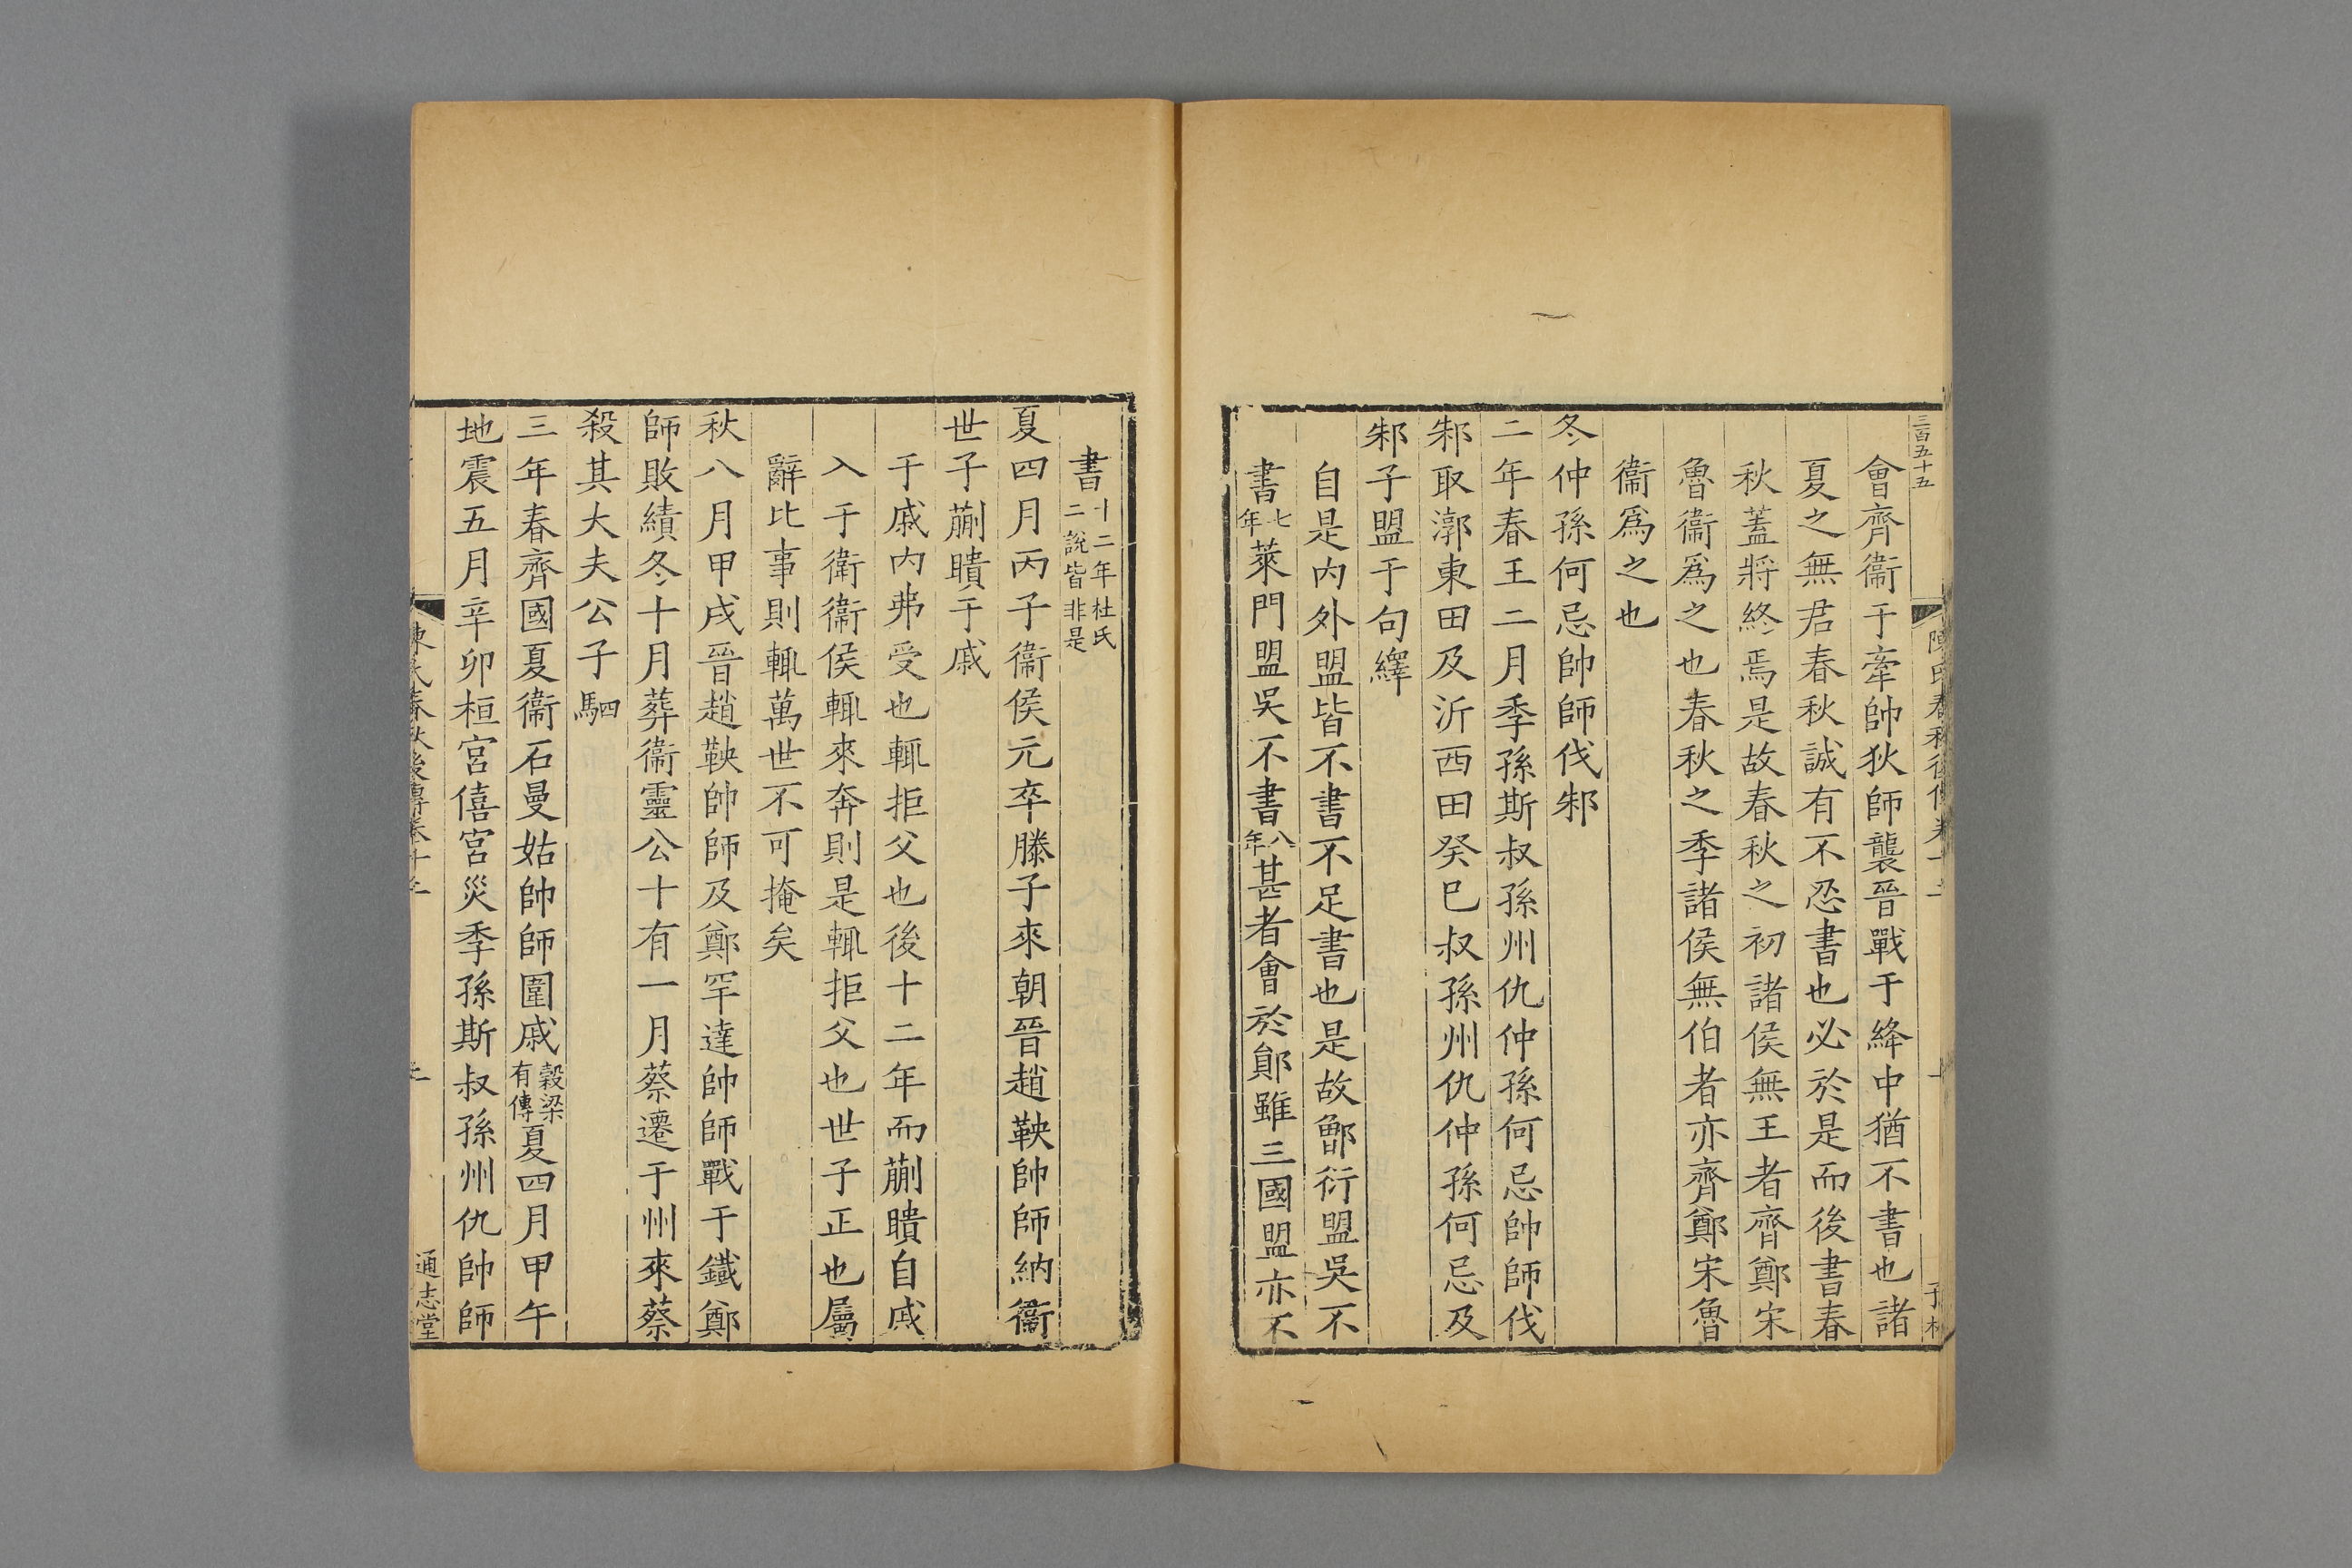 三百五十五
會齊衞于牽帥狄師襲晉戰于絳中猶不書也諸
夏之無君春秋誠有不忍書也必於是而後書春
秋蓋將終焉是故春秋之初諸侯無王者齊鄭宋
魯衞爲之也春秋之季諸侯無伯者亦齊鄭宋魯
衞爲之也
冬仲孫何忌帥師伐邾
二年春王二月季孫斯叔孫州仇仲孫何忌帥師伐
邾取漷東田及沂西田癸巳叔孫州仇仲孫何忌及
邾子盟于句繹
自是内外盟皆不書不足書也是故鄫衍盟吳不
書七年萊門盟吳不書八年甚者會於鄖雖三國盟亦不
書十二年杜氏二說皆非是
夏四月丙子衞侯元卒滕子來朝晉趙鞅帥師納衞
世子蒯聵于戚
于戚内弗受也輒拒父也後十二年而蒯聵自戚
入于衞衞侯輒來奔則是輒拒父也世子正也屬
辭比事則輒萬世不可掩矣
秋八月甲戌晉趙鞅帥師及鄭罕達帥師戰于鐵鄭
師敗績冬十月葬衞靈公十有一月蔡遷于州來蔡
殺其大夫公子駟
三年春齊國夏衞石曼姑帥師圍戚穀梁有傳夏四月甲午
地震五月辛卯桓宮僖宮災季孫斯叔孫州仇帥師
陳氏春秋後傳卷十二
通志堂